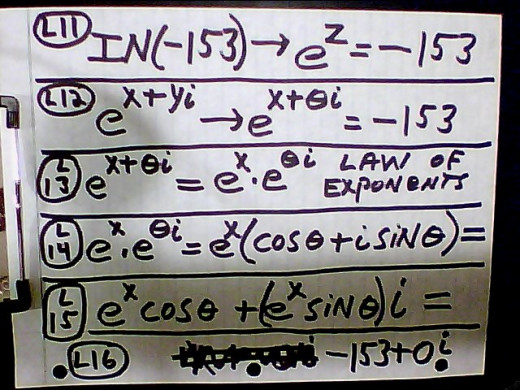 L11 IN(-153) → e^z = -153
L12 e^x+yi → e^x+θi = -153
L13 e^x+θi = e^x · e^θi LAW OF EXPONENTS
L14 e^x · e^θi = e^x(cosθ + i sinθ) =
L15 e^x cosθ + (e^x sinθ)i =
L16 -153+0i